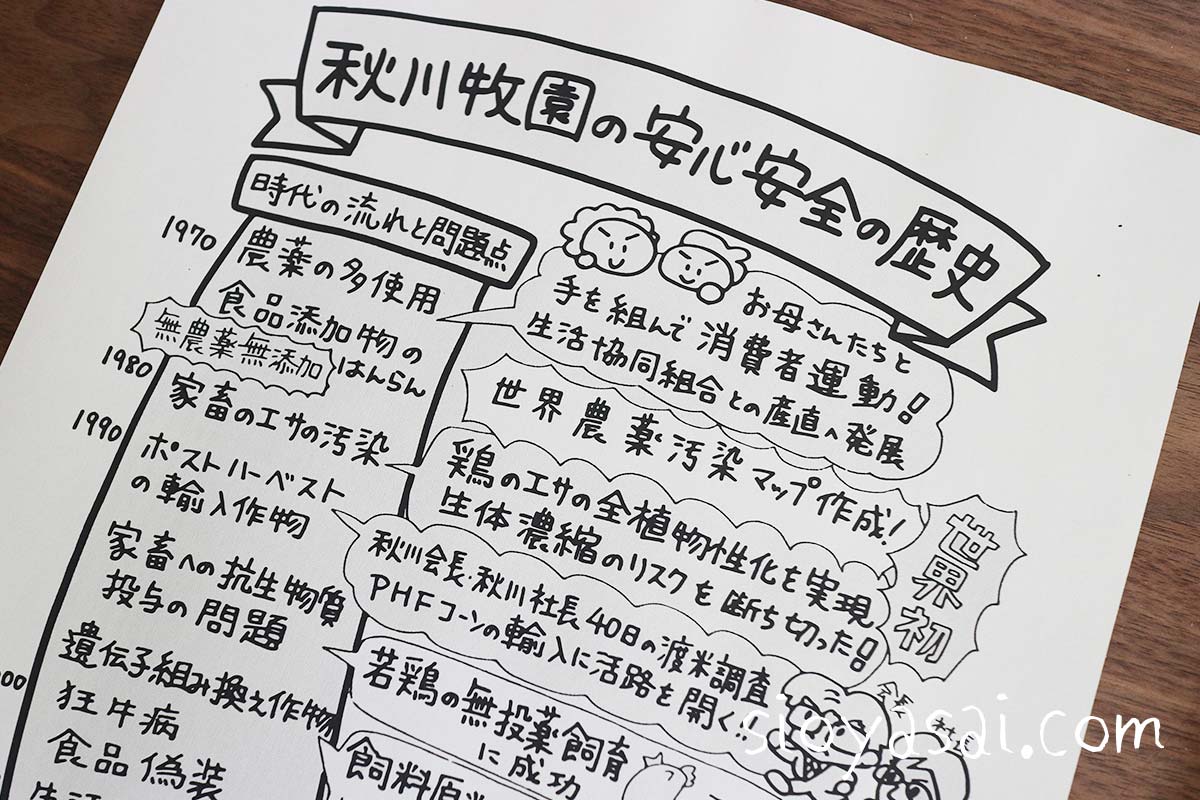 秋川牧園の安心安全の歴史
時代の流れと問題点
1970
農薬の多使用
食品添加物の
はんらん
無農薬無添加
1980
家畜のエサの汚染
1990
ポストハーベスト
の輸入作物
家畜への抗生物質
投与の問題
000
遺伝子組み換え作物
狂牛病
食品偽装
お母さんたちと
手を組んで消費者運動!
生活協同組合との産直へ発展
世界農薬汚染マップ作成!
鶏のエサの全植物性化を実現
生体濃縮のリスクを断ち切った!
世界初
秋川会長・秋川社長40日の渡米調査
PHFコーンの輸入に活路を開く!!
若鶏の無投薬飼育
に成功
飼料原料
sioyasai.com